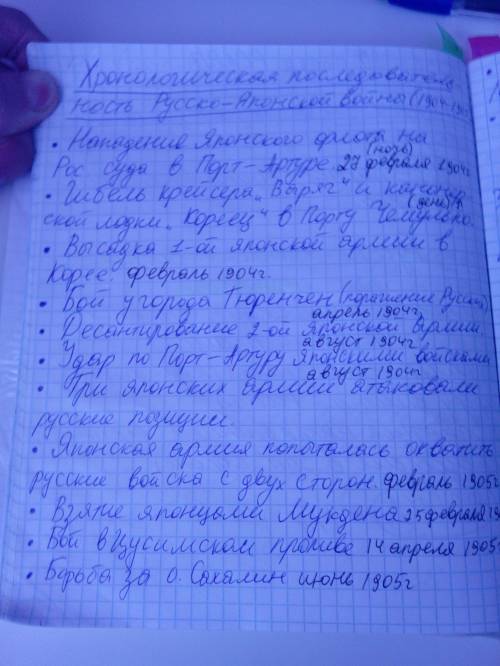 Хронологическая последователь
ность Русско-Японской войны (1904-1905
• Нападение Японского флота на
(ночь)
Рос суда в Порт-Артуре 27 февраля 1904г
• Гибель крейсера „Варяг" и канонер
(день)
ской лодки „Кореец" в Порту Чемульпо.
• Высадка 1-ой японской армии в
Корее. февраль 1904г.
• Бой у города Тюренчен (поражение Русских)
апрель 1904г
• Десантирование 2-ой Японской армии.
август 1904г
• Удар по Порт-Артуру Японскими войсками
август 1904г.
• Три японских армии атаковали
русские позиции.
• Японская армия попыталась охватить
русские войска с двух сторон. февраль 1905г
• Взятие японцами Мукдена 25 февраля
• Бой в Цусимском проливе 14 апреля 1905
• Борьба за о. Сахалин июнь 1905г